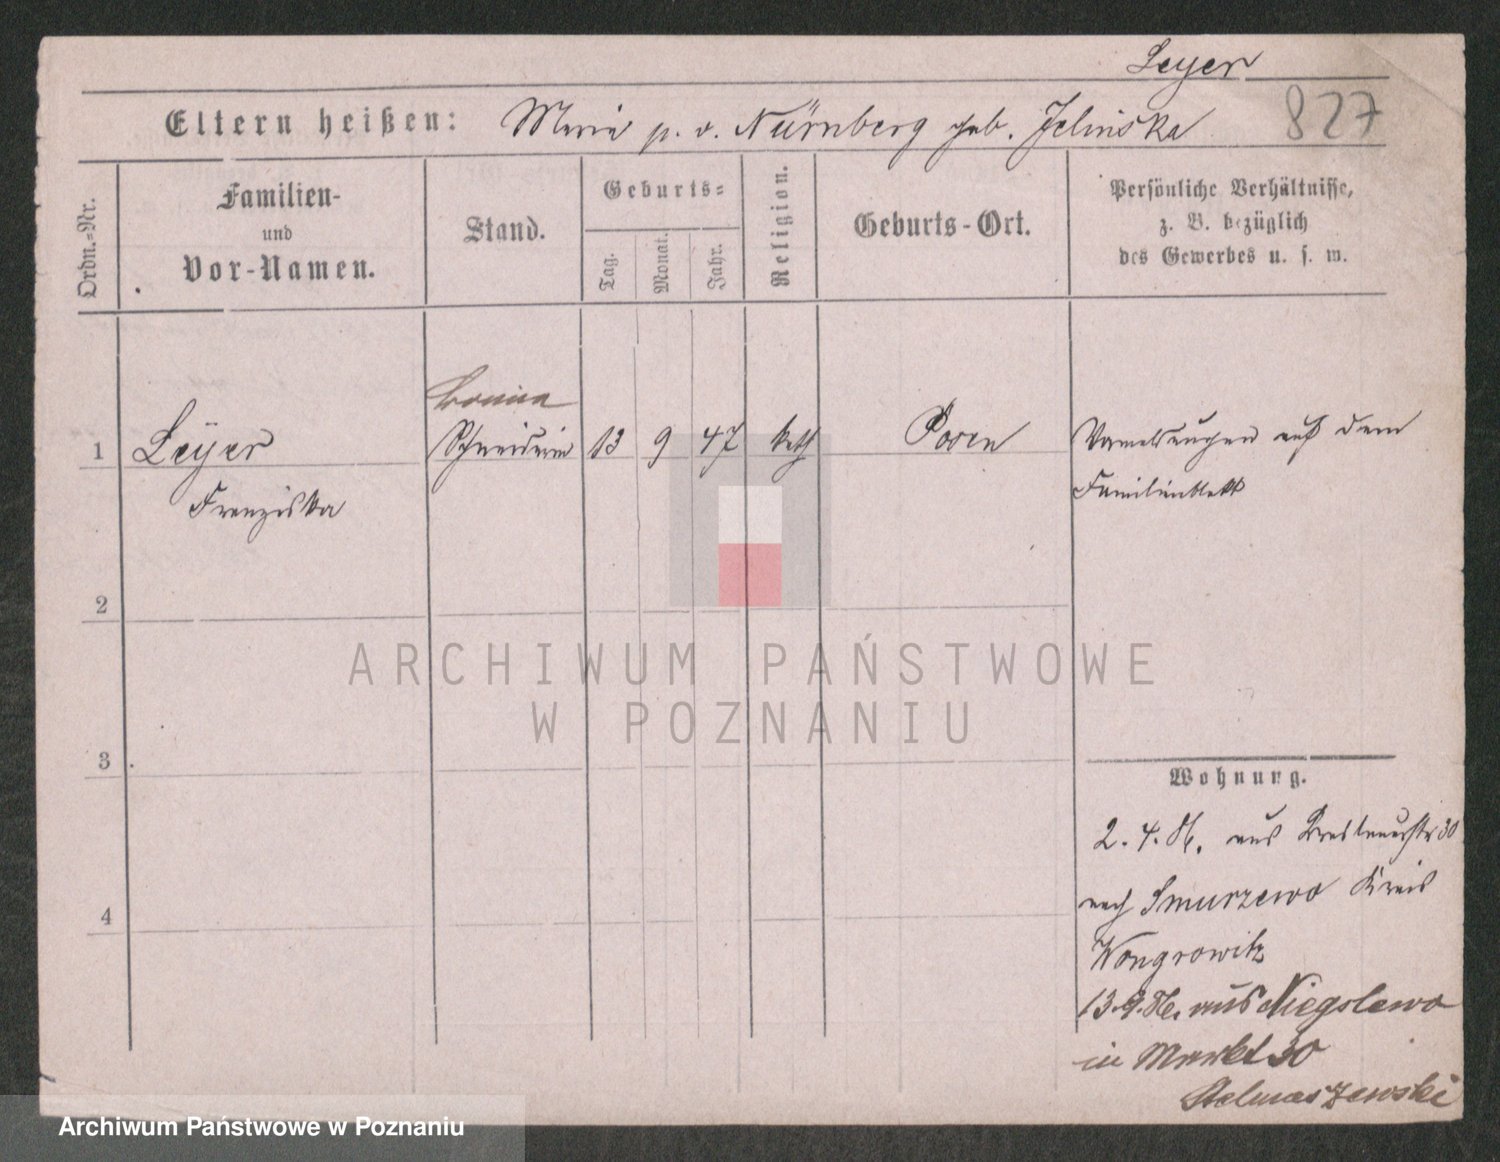 Leyer
827
Eltern heißen: Maria p. v. Nürnberg geb. Jelinska
Ordn.-Nr.
Familien-
und
Vor-Namen.
Stand.
Geburts-
Tag.
Monat.
Jahr.
Religion.
Geburts-Ort.
Persönliche Verhältnisse,
z. B. bezüglich
des Gewerbes u. s. w.
1 Leÿer Schneiderin 13 9 47 kath Posen auf dem
Franziska Familienblatt
2
3
4
Wohnung.
2. 4. 86. aus Breslauerstr 30
nach Smurzewo Kreis
Wongrowitz
13. 9. 86. aus Niegolewo
in Markt 30
Stelmaszewski
ARCHIWUM PAŃSTWOWE
W POZNANIU
Archiwum Państwowe w Poznaniu